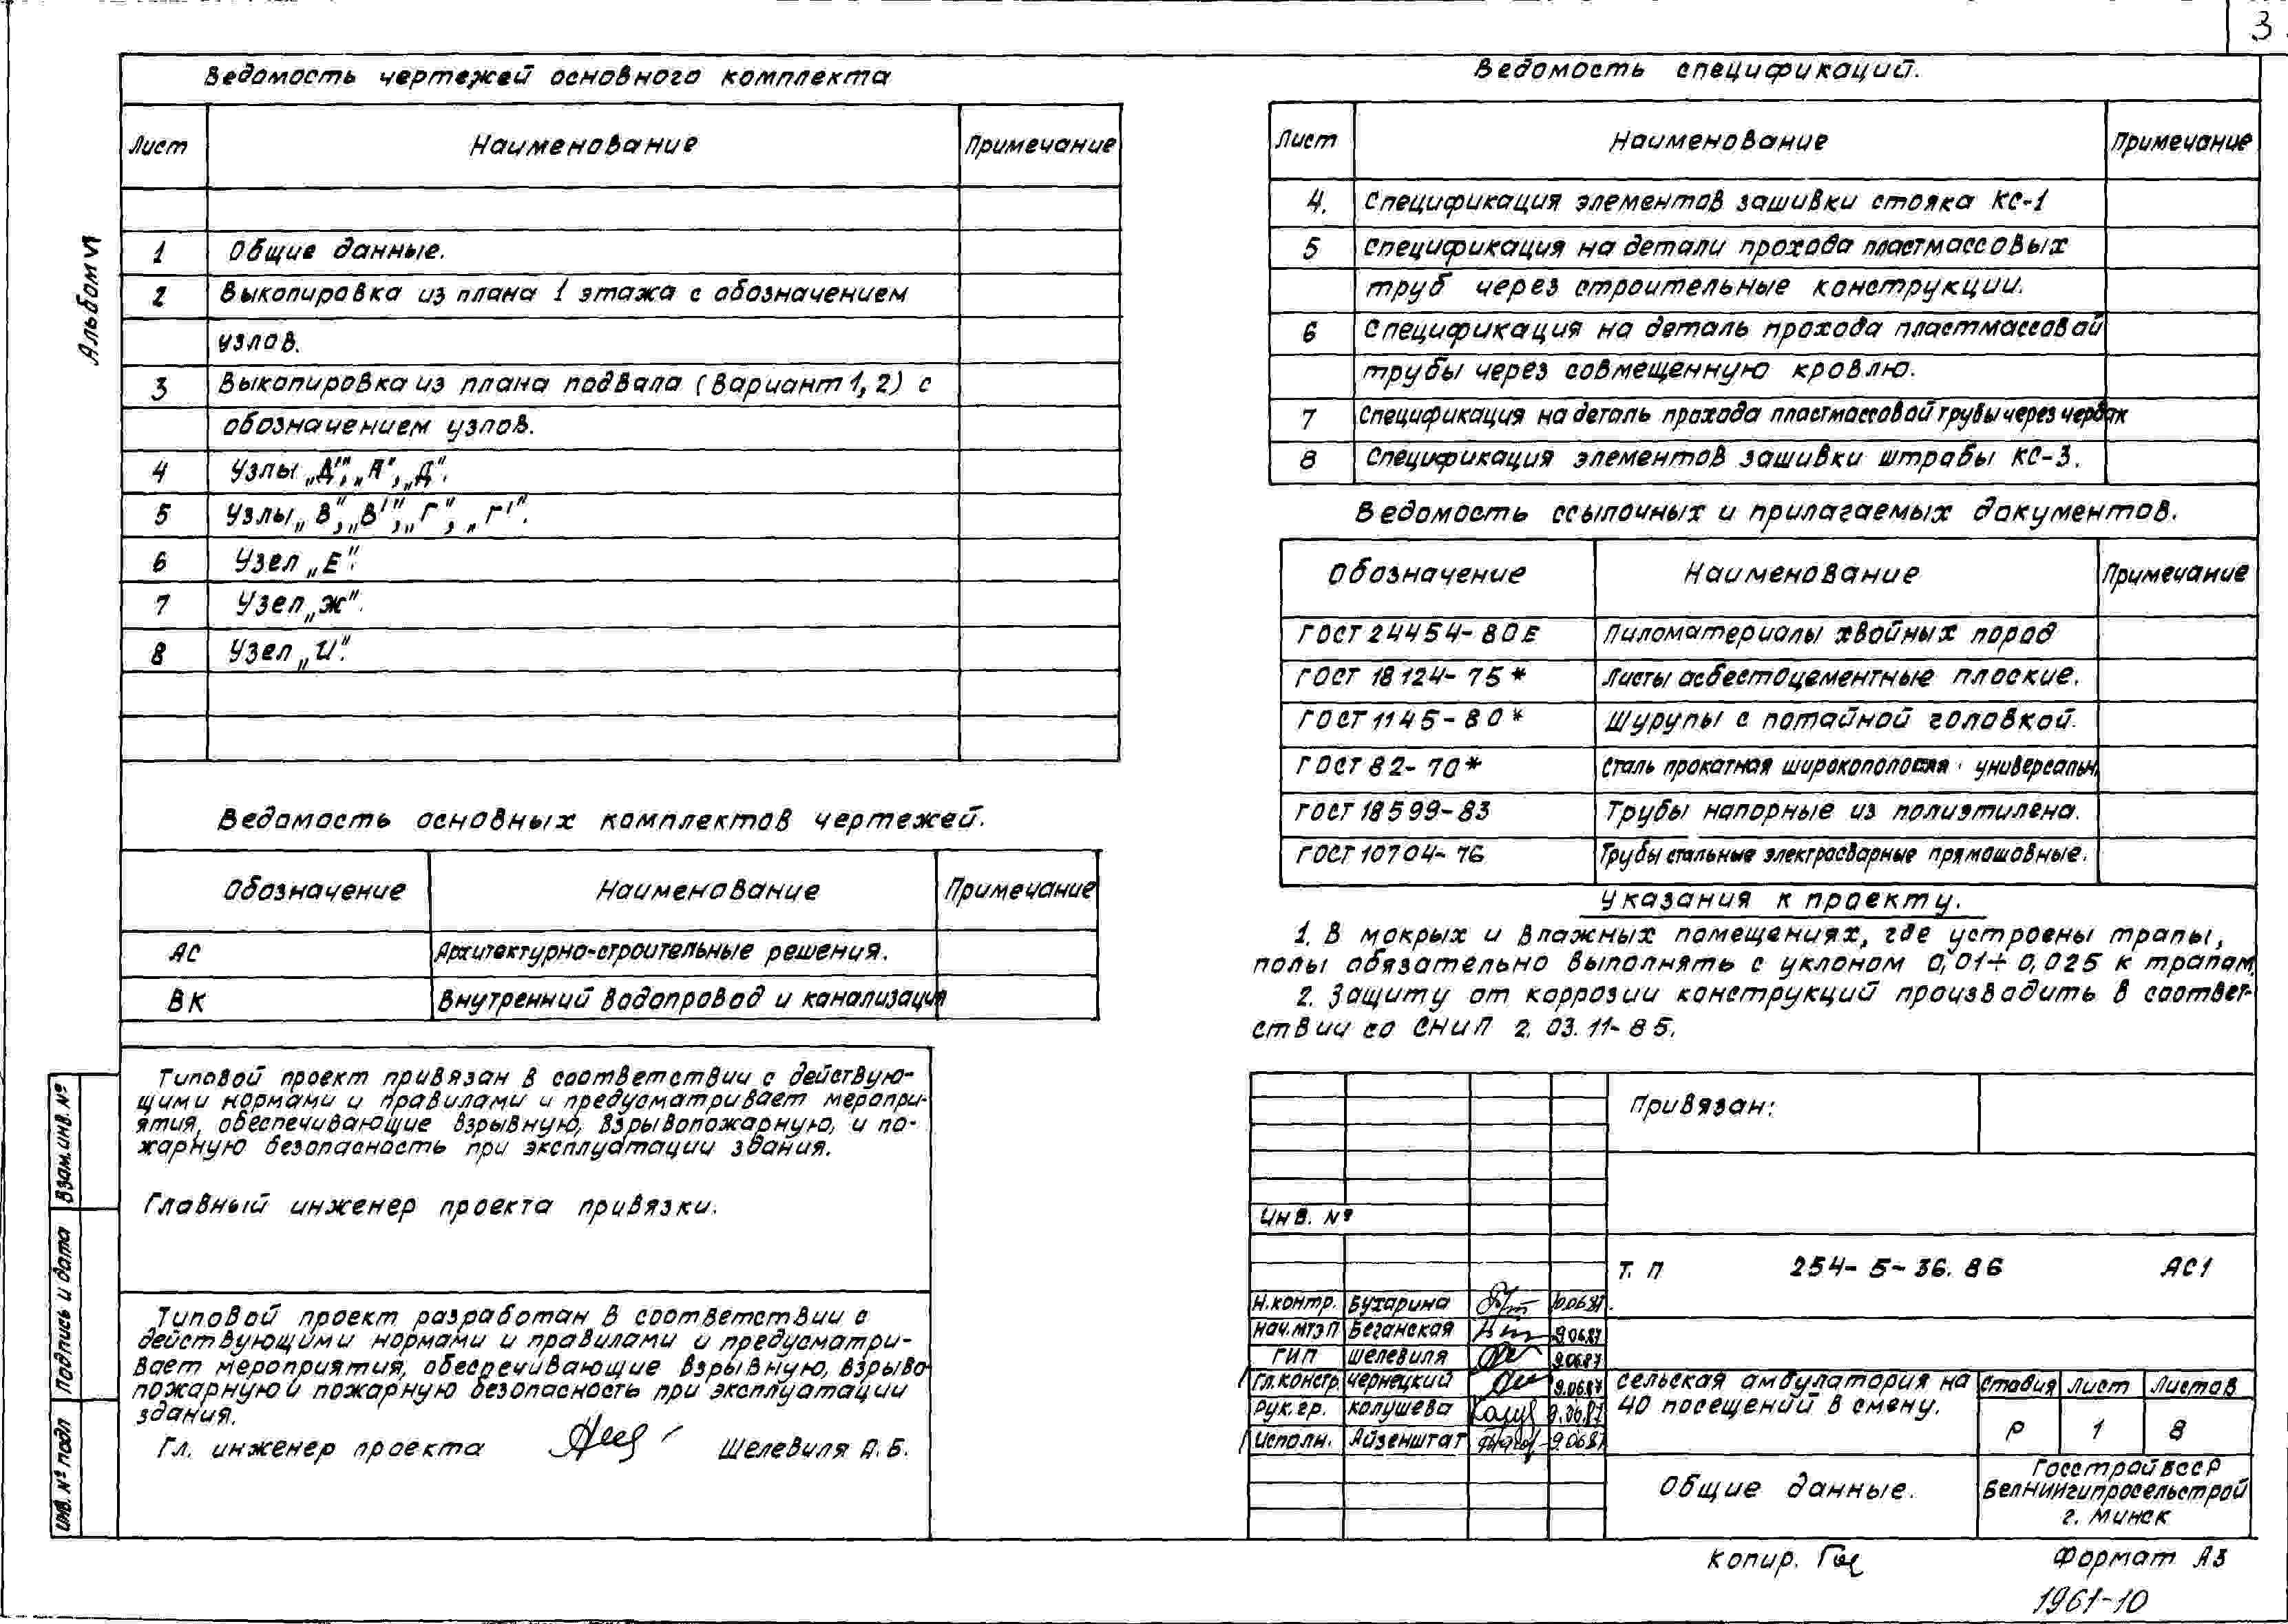 3
Альбом VI
Ведомость чертежей основного комплекта
Лист Наименование Примечание
1 Общие данные.
2 Выкопировка из плана 1 этажа с обозначением
узлов.
3 Выкопировка из плана подвала (Вариант 1, 2) с
обозначением узлов.
4 Узлы „А'", „А", „Д".
5 Узлы „В", „В'", „Г", „Г'".
6 Узел „Е".
7 Узел „Ж".
8 Узел „И".
Ведомость основных комплектов чертежей.
Обозначение Наименование Примечание
АС Архитектурно-строительные решения.
ВК Внутренний водопровод и канализация
Типовой проект привязан в соответствии с действую-
щими нормами и правилами и предусматривает меропри-
ятия, обеспечивающие взрывную, взрывопожарную, и по-
жарную безопасность при эксплуатации здания.
Главный инженер проекта привязки.
Типовой проект разработан в соответствии с
действующими нормами и правилами и предусматри-
вает мероприятия, обеспечивающие взрывную, взрыво
пожарную и пожарную безопасность при эксплуатации
здания.
Гл. инженер проекта Шелевиля А.Б.
Взам. инв. №
Подпись и дата
Инв. № подл
Ведомость спецификаций.
Лист Наименование Примечание
4. Спецификация элементов зашивки стояка КС-1
5 Спецификация на детали прохода пластмассовых
труб через строительные конструкции.
6 Спецификация на деталь прохода пластмассовой
трубы через совмещенную кровлю.
7 Спецификация на деталь прохода пластмассовой трубы через чердак
8 Спецификация элементов зашивки штрабы КС-3.
Ведомость ссылочных и прилагаемых документов.
Обозначение Наименование Примечание
ГОСТ 24454-80Е Пиломатериалы хвойных пород
ГОСТ 18124-75* Листы асбестоцементные плоские.
ГОСТ 1145-80* Шурупы с потайной головкой.
ГОСТ 82-70* Сталь прокатная широкополосная универсальн.
ГОСТ 18599-83 Трубы напорные из полиэтилена.
ГОСТ 10704-76 Трубы стальные электросварные прямошовные.
Указания к проекту.
1. В мокрых и влажных помещениях, где устроены трапы,
полы обязательно выполнять с уклоном 0,01÷0,025 к трапам.
2. Защиту от коррозии конструкций производить в соответ-
ствии со СНиП 2.03.11-85.
Привязан:
Инв. №
Т. П 254-5-36.86 АС1
Н.контр. Бухарина 10.06.87.
Нач.МТЭП Беганская 9.06.87
ГИП Шелевиля 9.06.87
Гл.констр. Чернецкий 9.06.87
Рук.гр. Колушева 9.06.87
Исполн. Айзенштат 9.06.87
Сельская амбулатория на
40 посещений в смену.
Стадия Лист Листов
Р 1 8
Общие данные.
Госстрой БССР
БелНИИгипросельстрой
г. Минск
Копир.
Формат А3
1961-10